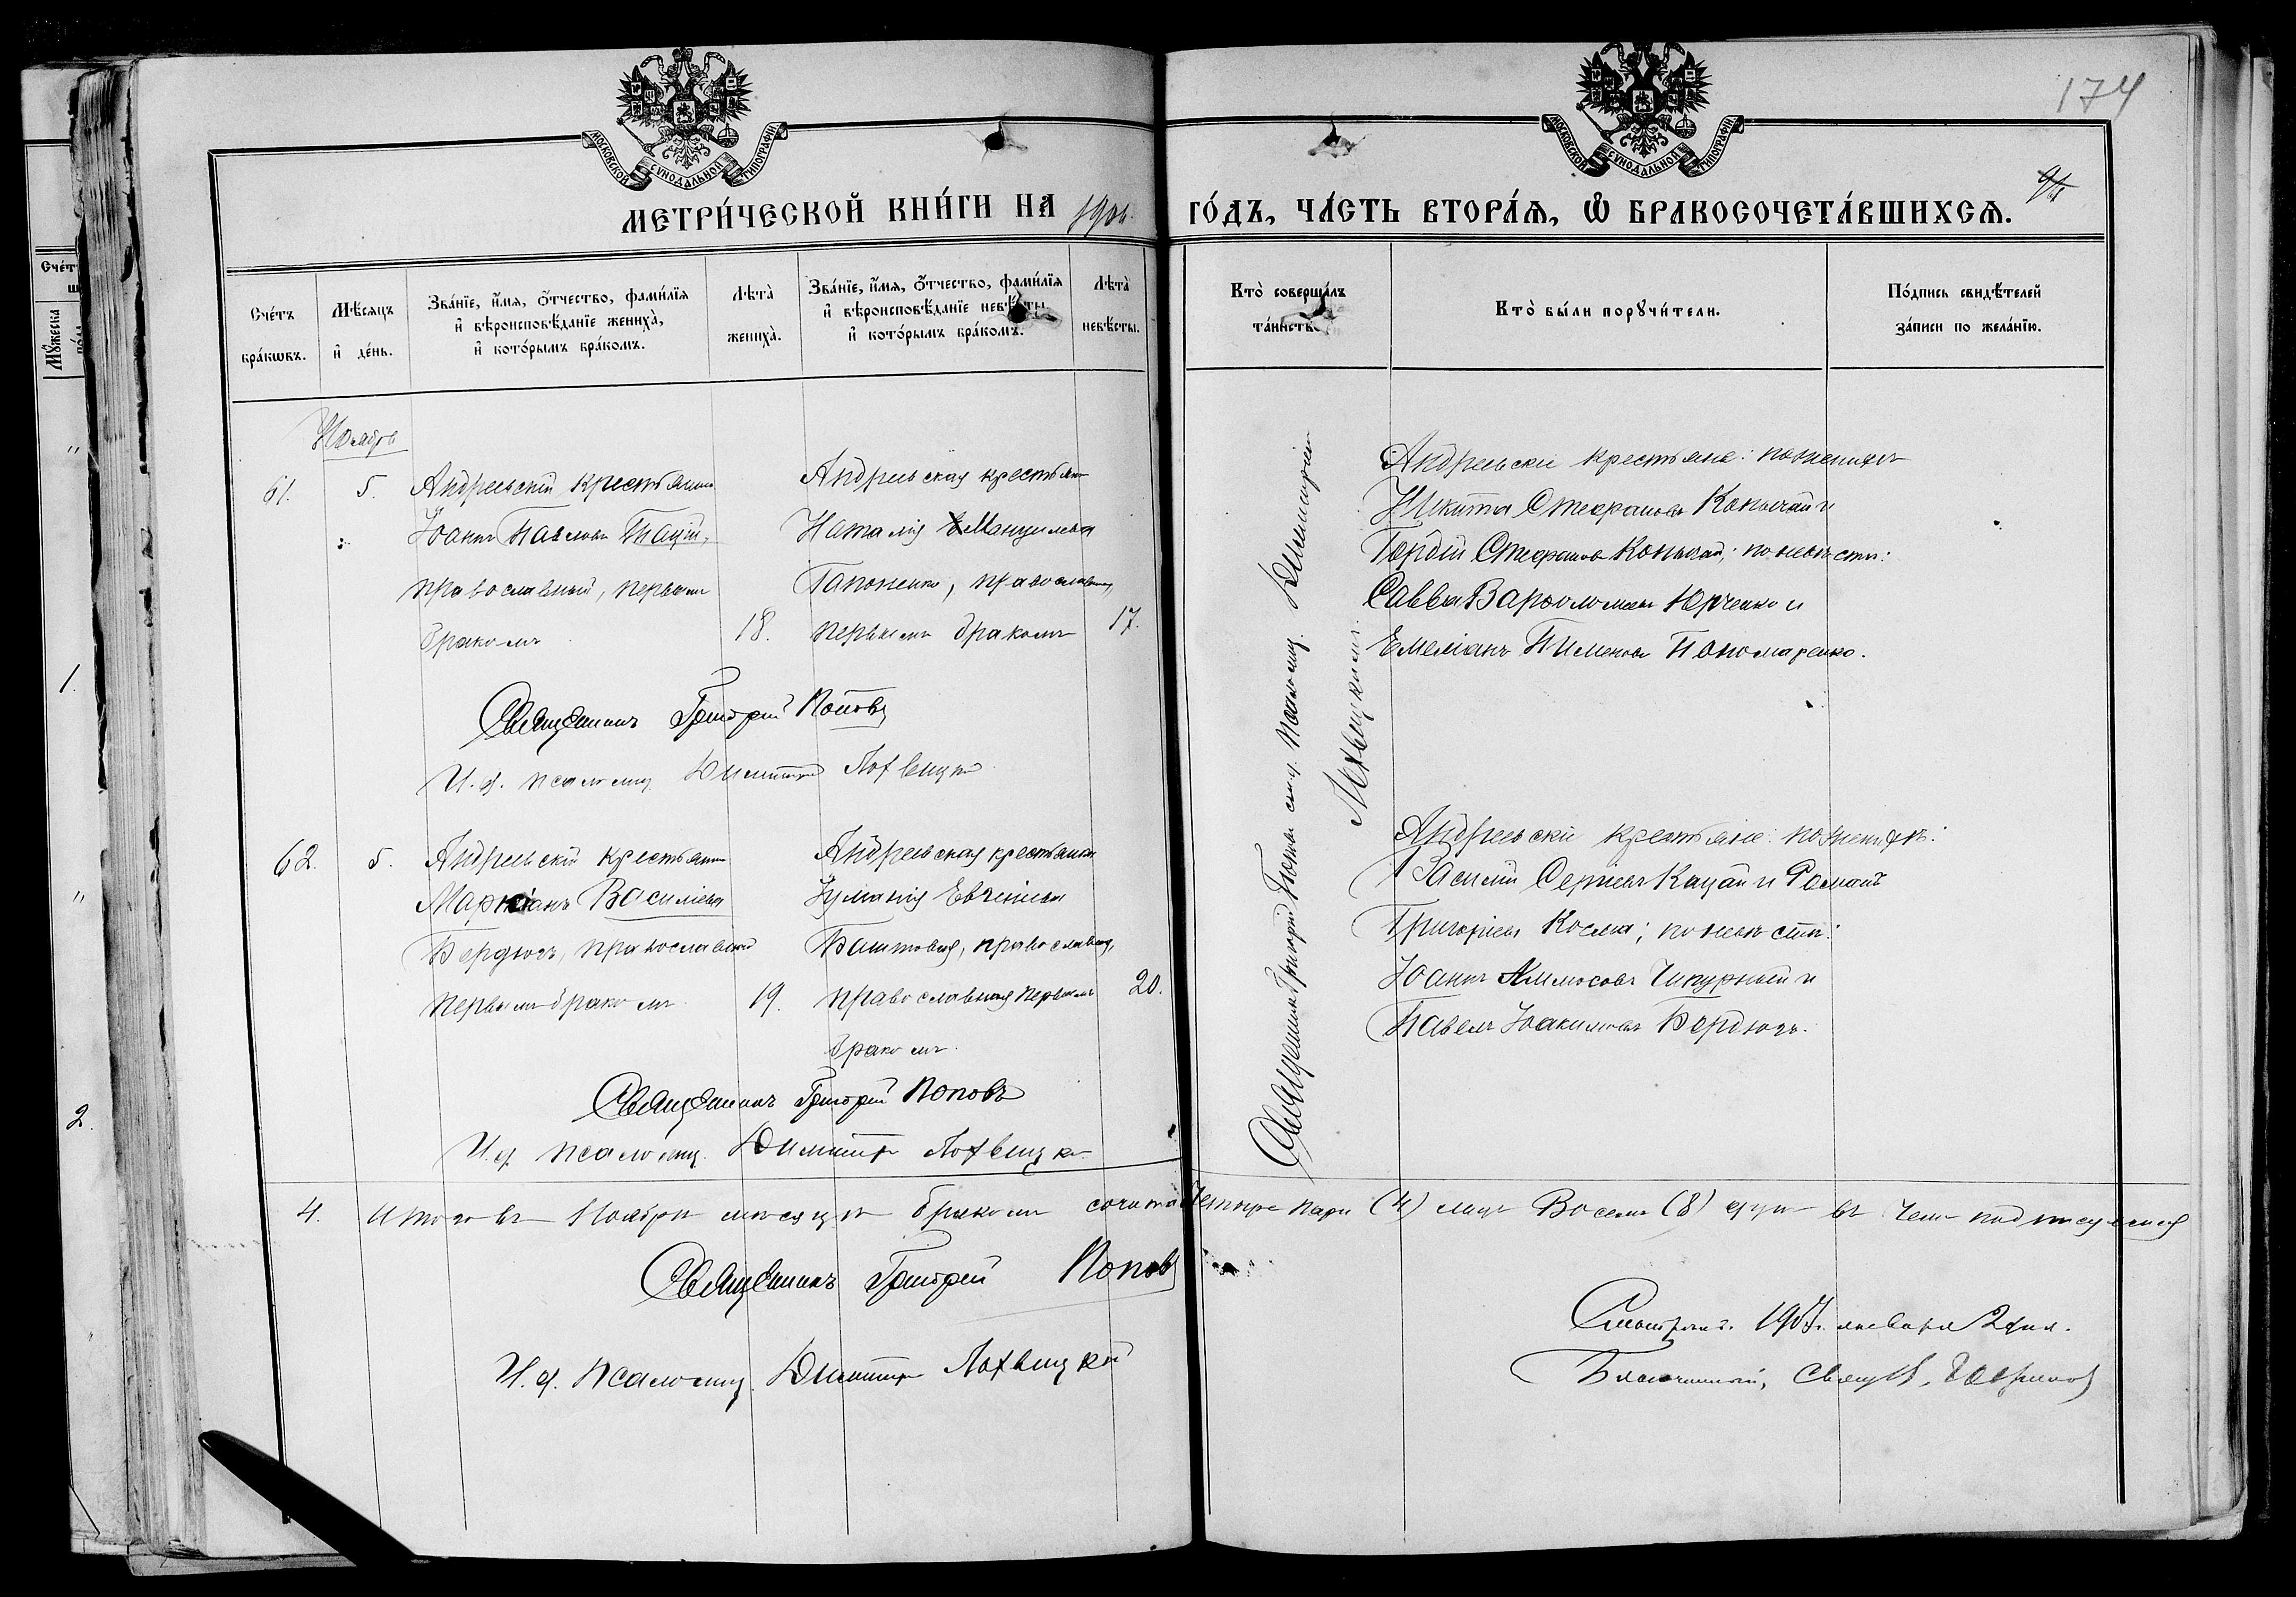 174
МОСКОВСКОЙ СѴНОДАЛЬНОЙ ТИПОГРАФІИ
МОСКОВСКОЙ СѴНОДАЛЬНОЙ ТИПОГРАФІИ
МЕТРИ́ЧЕСКОЙ КНИ́ГИ НА 190
ГО́ДЪ, ЧА́СТЬ ВТОРА́Я, Ѡ БРАКОСОЧЕТА́ВШИХСЯ.
Сче́тъ бра́кωвъ.
Мѣ́сяцъ и҆ де́нь.
Зва́нїе, и҆́мя, ѻ҆́тчество, фами́лїя и҆ вѣроисповѣ́данїе жениха̀, и҆ кото́рымъ бра́комъ.
Лѣта̀ жениха̀.
Зва́нїе, и҆́мя, ѻ҆́тчество, фами́лїя и҆ вѣроисповѣ́данїе невѣ́сты, и҆ кото́рымъ бра́комъ.
Лѣта̀ невѣ́сты.
Кто̀ соверша́лъ та́инство
Кто̀ бы́ли порꙋчи́тели.
По́дпись свидѣ́телей за́писи по жела́нїю.
Ноябрь
61.
5.
Андреевскій крестьянин
Іоаннъ Павловъ Пацій,
православный, первымъ
бракомъ
18.
Андреевская крестьян
Наталія Мануилова
Гапоненко, православная,
первымъ бракомъ
17.
Андреевскіе крестьяне: по женихѣ
Никита Стефановъ Конычай и
Гордій Стефановъ Конычай; по невѣстѣ:
Савва Варѳоломеевъ Юрченко и
Емеліанъ Пименовъ Пономаренко.
Священникъ Григорій Поповъ
И. д. псаломщ. Димитрій Лохвицкій
Священникъ Григорій Поповъ съ и. д. псаломщ. Димитріемъ
Лохвицкимъ.
62.
5.
Андреевскій крестьянин
Маркіанъ Василіевъ
Бердюгъ, православный
первымъ бракомъ
19.
Андреевская крестьянка
Іуліанія Евгеніева
Баштовая, православная,
православная первымъ
бракомъ.
20.
Андреевскіе крестьяне: по женихѣ:
Василій Сергіевъ Кацай и Романъ
Григоріевъ Косма; по невѣстѣ:
Іоаннъ Чипурный и
Павелъ Іоакимовъ Бердюгъ.
Священникъ Григорій Поповъ
И. д. псаломщ. Димитрій Лохвицкій
4. Итого въ Ноябрѣ мѣсяцѣ бракомъ сочита четыре пары (4) лицъ Восемь (8) душъ въ чемъ подписуемся
Священникъ Григорій Поповъ
И. д. Псаломщ. Димитрій Лохвицкій
Смотрѣлъ. 1907. января 2 дня.
Благочинный, Свящ.
Сче́т
Мꙋ́жеска по́ла
1.
2.